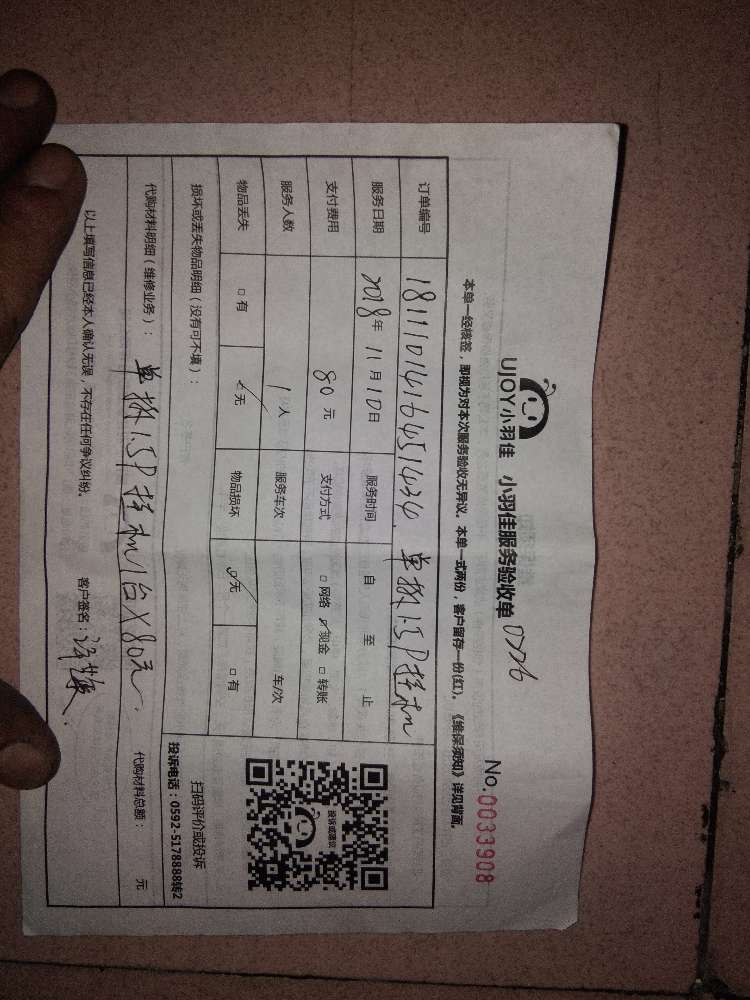 UJOY小羽佳 小羽佳服务验收单
No.0033908
本单一经核签，即视为对本次服务验收无异议。本单一式两份，客户留存一份(红)。《维保须知》详见背面。
订单编号 181110141645143 单拆1.5P挂机
服务日期 2018年11月10日 服务时间 自 至 止
支付费用 80元 支付方式 □网络 ☑现金 □转账
服务人数 1人 服务车次 车/次
物品丢失 □有 ☑无 物品损坏 ☑无 □有
损坏或丢失物品明细（没有可不填）：
投诉或建议
扫码评价或投诉
投诉电话：0592-5178888转2
代购材料明细（维修业务）： 单拆1.5P挂机1台X80元. 代购材料总额： 元
以上填写信息已经本人确认无误，不存在任何争议纠纷。 客户签名：